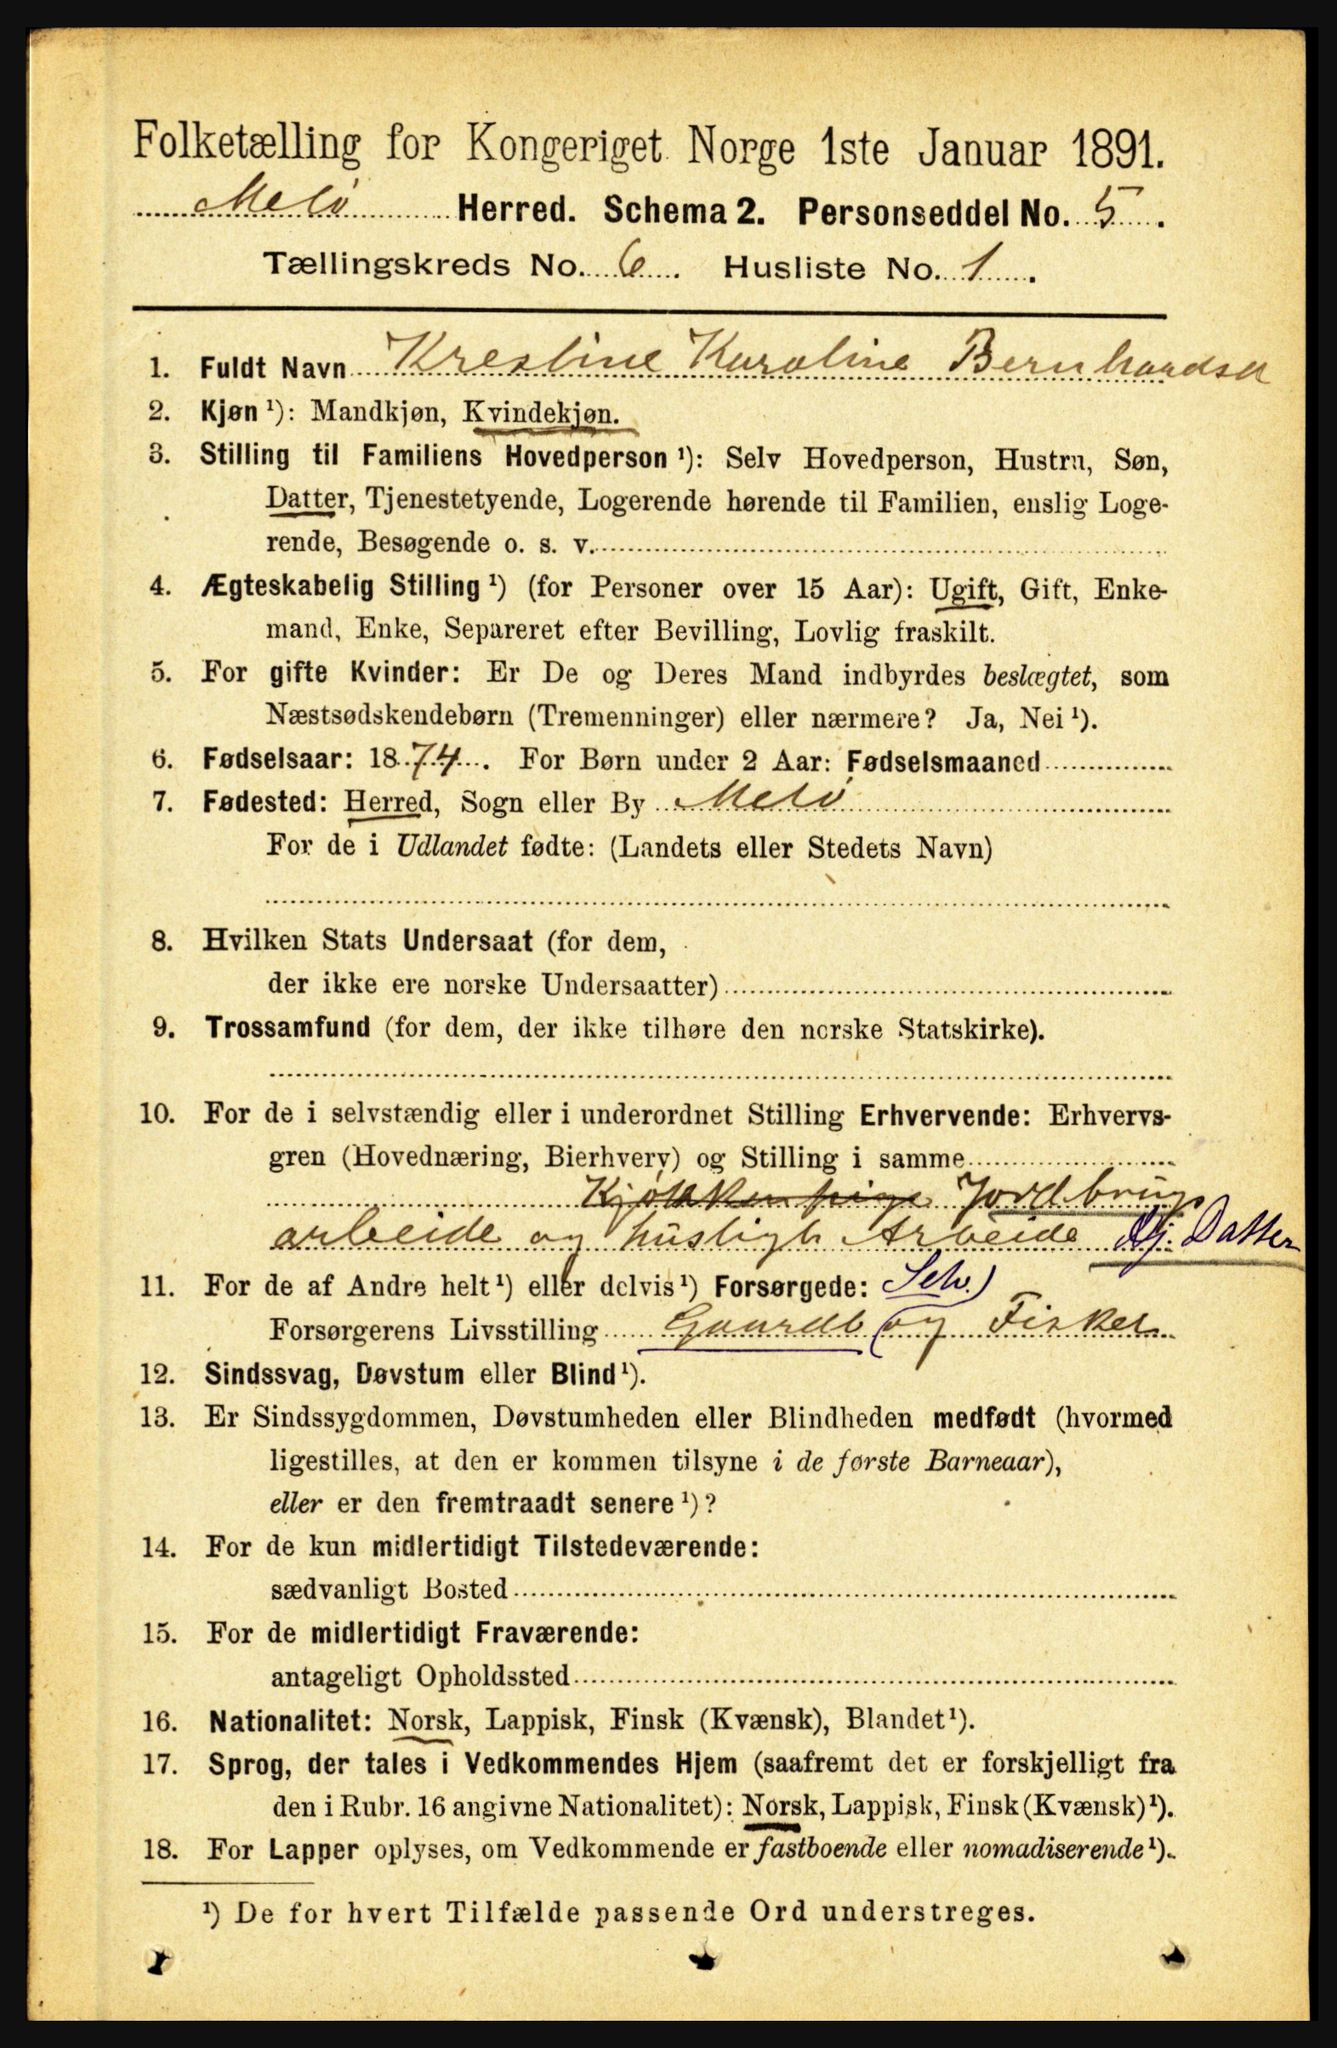 Folketælling for Kongeriget Norge 1ste Januar 1891.
Melö Herred. Schema 2. Personseddel No. 5.
Tællingskreds No. 6. Husliste No. 1.
1. Fuldt Navn Krestine Karoline Bernhardsd
2. Kjøn ¹): Mandkjøn, Kvindekjøn.
3. Stilling til Familiens Hovedperson ¹): Selv Hovedperson, Hustru, Søn,
Datter, Tjenestetyende, Logerende hørende til Familien, enslig Loge-
rende, Besøgende o. s. v.
4. Ægteskabelig Stilling ¹) (for Personer over 15 Aar): Ugift, Gift, Enke-
mand, Enke, Separeret efter Bevilling, Lovlig fraskilt.
5. For gifte Kvinder: Er De og Deres Mand indbyrdes beslægtet, som
Næstsødskendebørn (Tremenninger) eller nærmere? Ja, Nei ¹).
6. Fødselsaar: 1874. For Børn under 2 Aar: Fødselsmaaned
7. Fødested: Herred, Sogn eller By Melö
For de i Udlandet fødte: (Landets eller Stedets Navn)
8. Hvilken Stats Undersaat (for dem,
der ikke ere norske Undersaatter)
9. Trossamfund (for dem, der ikke tilhøre den norske Statskirke).
10. For de i selvstændig eller i underordnet Stilling Erhvervende: Erhvervs-
gren (Hovednæring, Bierhverv) og Stilling i samme
Kjøkkenpige Jordbrugs
arbeide og husligt Arbeide Hj. Datter
11. For de af Andre helt ¹) eller delvis ¹) Forsørgede: Selv.)
Forsørgerens Livsstilling Gaardb og Fisker
12. Sindssvag, Døvstum eller Blind ¹).
13. Er Sindssygdommen, Døvstumheden eller Blindheden medfødt (hvormed
ligestilles, at den er kommen tilsyne i de første Barneaar),
eller er den fremtraadt senere ¹)?
14. For de kun midlertidigt Tilstedeværende:
sædvanligt Bosted
15. For de midlertidigt Fraværende:
antageligt Opholdssted
16. Nationalitet: Norsk, Lappisk, Finsk (Kvænsk), Blandet ¹).
17. Sprog, der tales i Vedkommendes Hjem (saafremt det er forskjelligt fra
den i Rubr. 16 angivne Nationalitet): Norsk, Lappisk, Finsk (Kvænsk) ¹).
18. For Lapper oplyses, om Vedkommende er fastboende eller nomadiserende ¹).
¹) De for hvert Tilfælde passende Ord understreges.